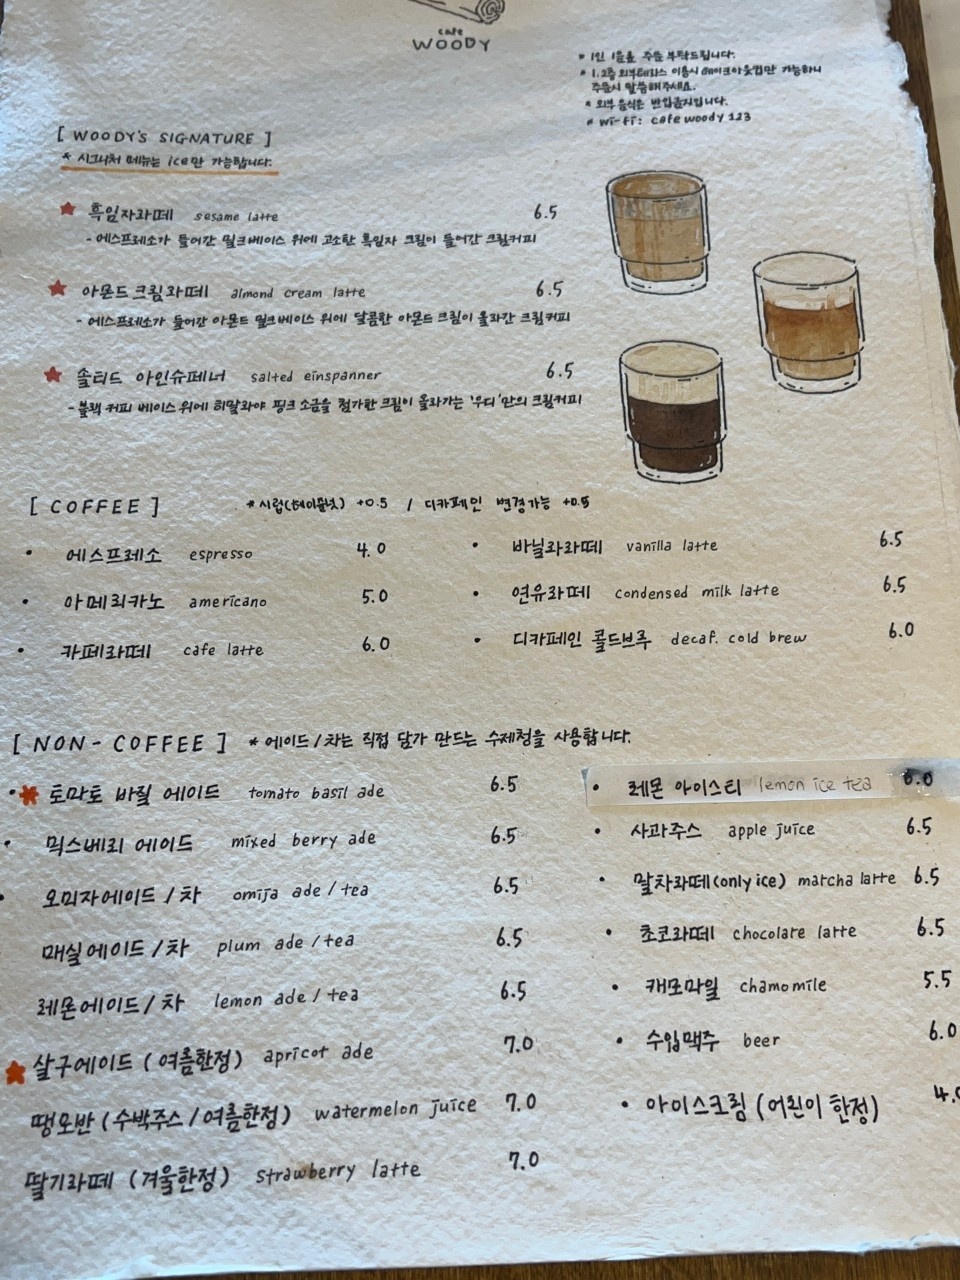 cafe
WOODY
* 1인 1음료 주문 부탁드립니다.
* 1, 2층 외부테라스 이용시 테이크아웃컵만 가능하니
주문시 말씀해주세요.
* 외부 음식은 반입금지입니다.
* wi-fi: cafewoody123
[ WOODY'S SIGNATURE ]
* 시그니처 메뉴는 ice만 가능합니다.
★ 흑임자라떼 sesame latte 6.5
- 에스프레소가 들어간 밀크베이스 위에 고소한 흑임자 크림이 들어간 크림커피
★ 아몬드 크림라떼 almond cream latte 6.5
- 에스프레소가 들어간 아몬드 밀크베이스 위에 달콤한 아몬드 크림이 올라간 크림커피
★ 솔티드 아인슈페너 salted einspanner 6.5
- 블랙 커피 베이스 위에 히말라야 핑크 소금을 첨가한 크림이 올라가는 '우디'만의 크림커피
[ COFFEE ] * 시럽(헤이즐넛) +0.5 / 디카페인 변경가능 +0.5
• 에스프레소 espresso 4.0
• 아메리카노 americano 5.0
• 카페라떼 cafe latte 6.0
• 바닐라라떼 vanilla latte 6.5
• 연유라떼 condensed milk latte 6.5
• 디카페인 콜드브루 decaf. cold brew 6.0
[ NON - COFFEE ] * 에이드/차는 직접 담가 만드는 수제청을 사용합니다.
• 토마토 바질 에이드 tomato basil ade 6.5
• 믹스베리 에이드 mixed berry ade 6.5
• 오미자에이드 / 차 omija ade / tea 6.5
매실에이드 / 차 plum ade / tea 6.5
레몬에이드 / 차 lemon ade / tea 6.5
★ 살구에이드 ( 여름한정) apricot ade 7.0
땡모반 (수박주스 / 여름한정) watermelon juice 7.0
딸기라떼 (겨울한정) strawberry latte 7.0
• 레몬 아이스티 lemon ice tea 6.0
• 사과주스 apple juice 6.5
• 말차라떼(only ice) matcha latte 6.5
• 초코라떼 chocolate latte 6.5
• 캐모마일 chamomile 5.5
• 수입맥주 beer 6.0
• 아이스크림 (어린이 한정) 4.0